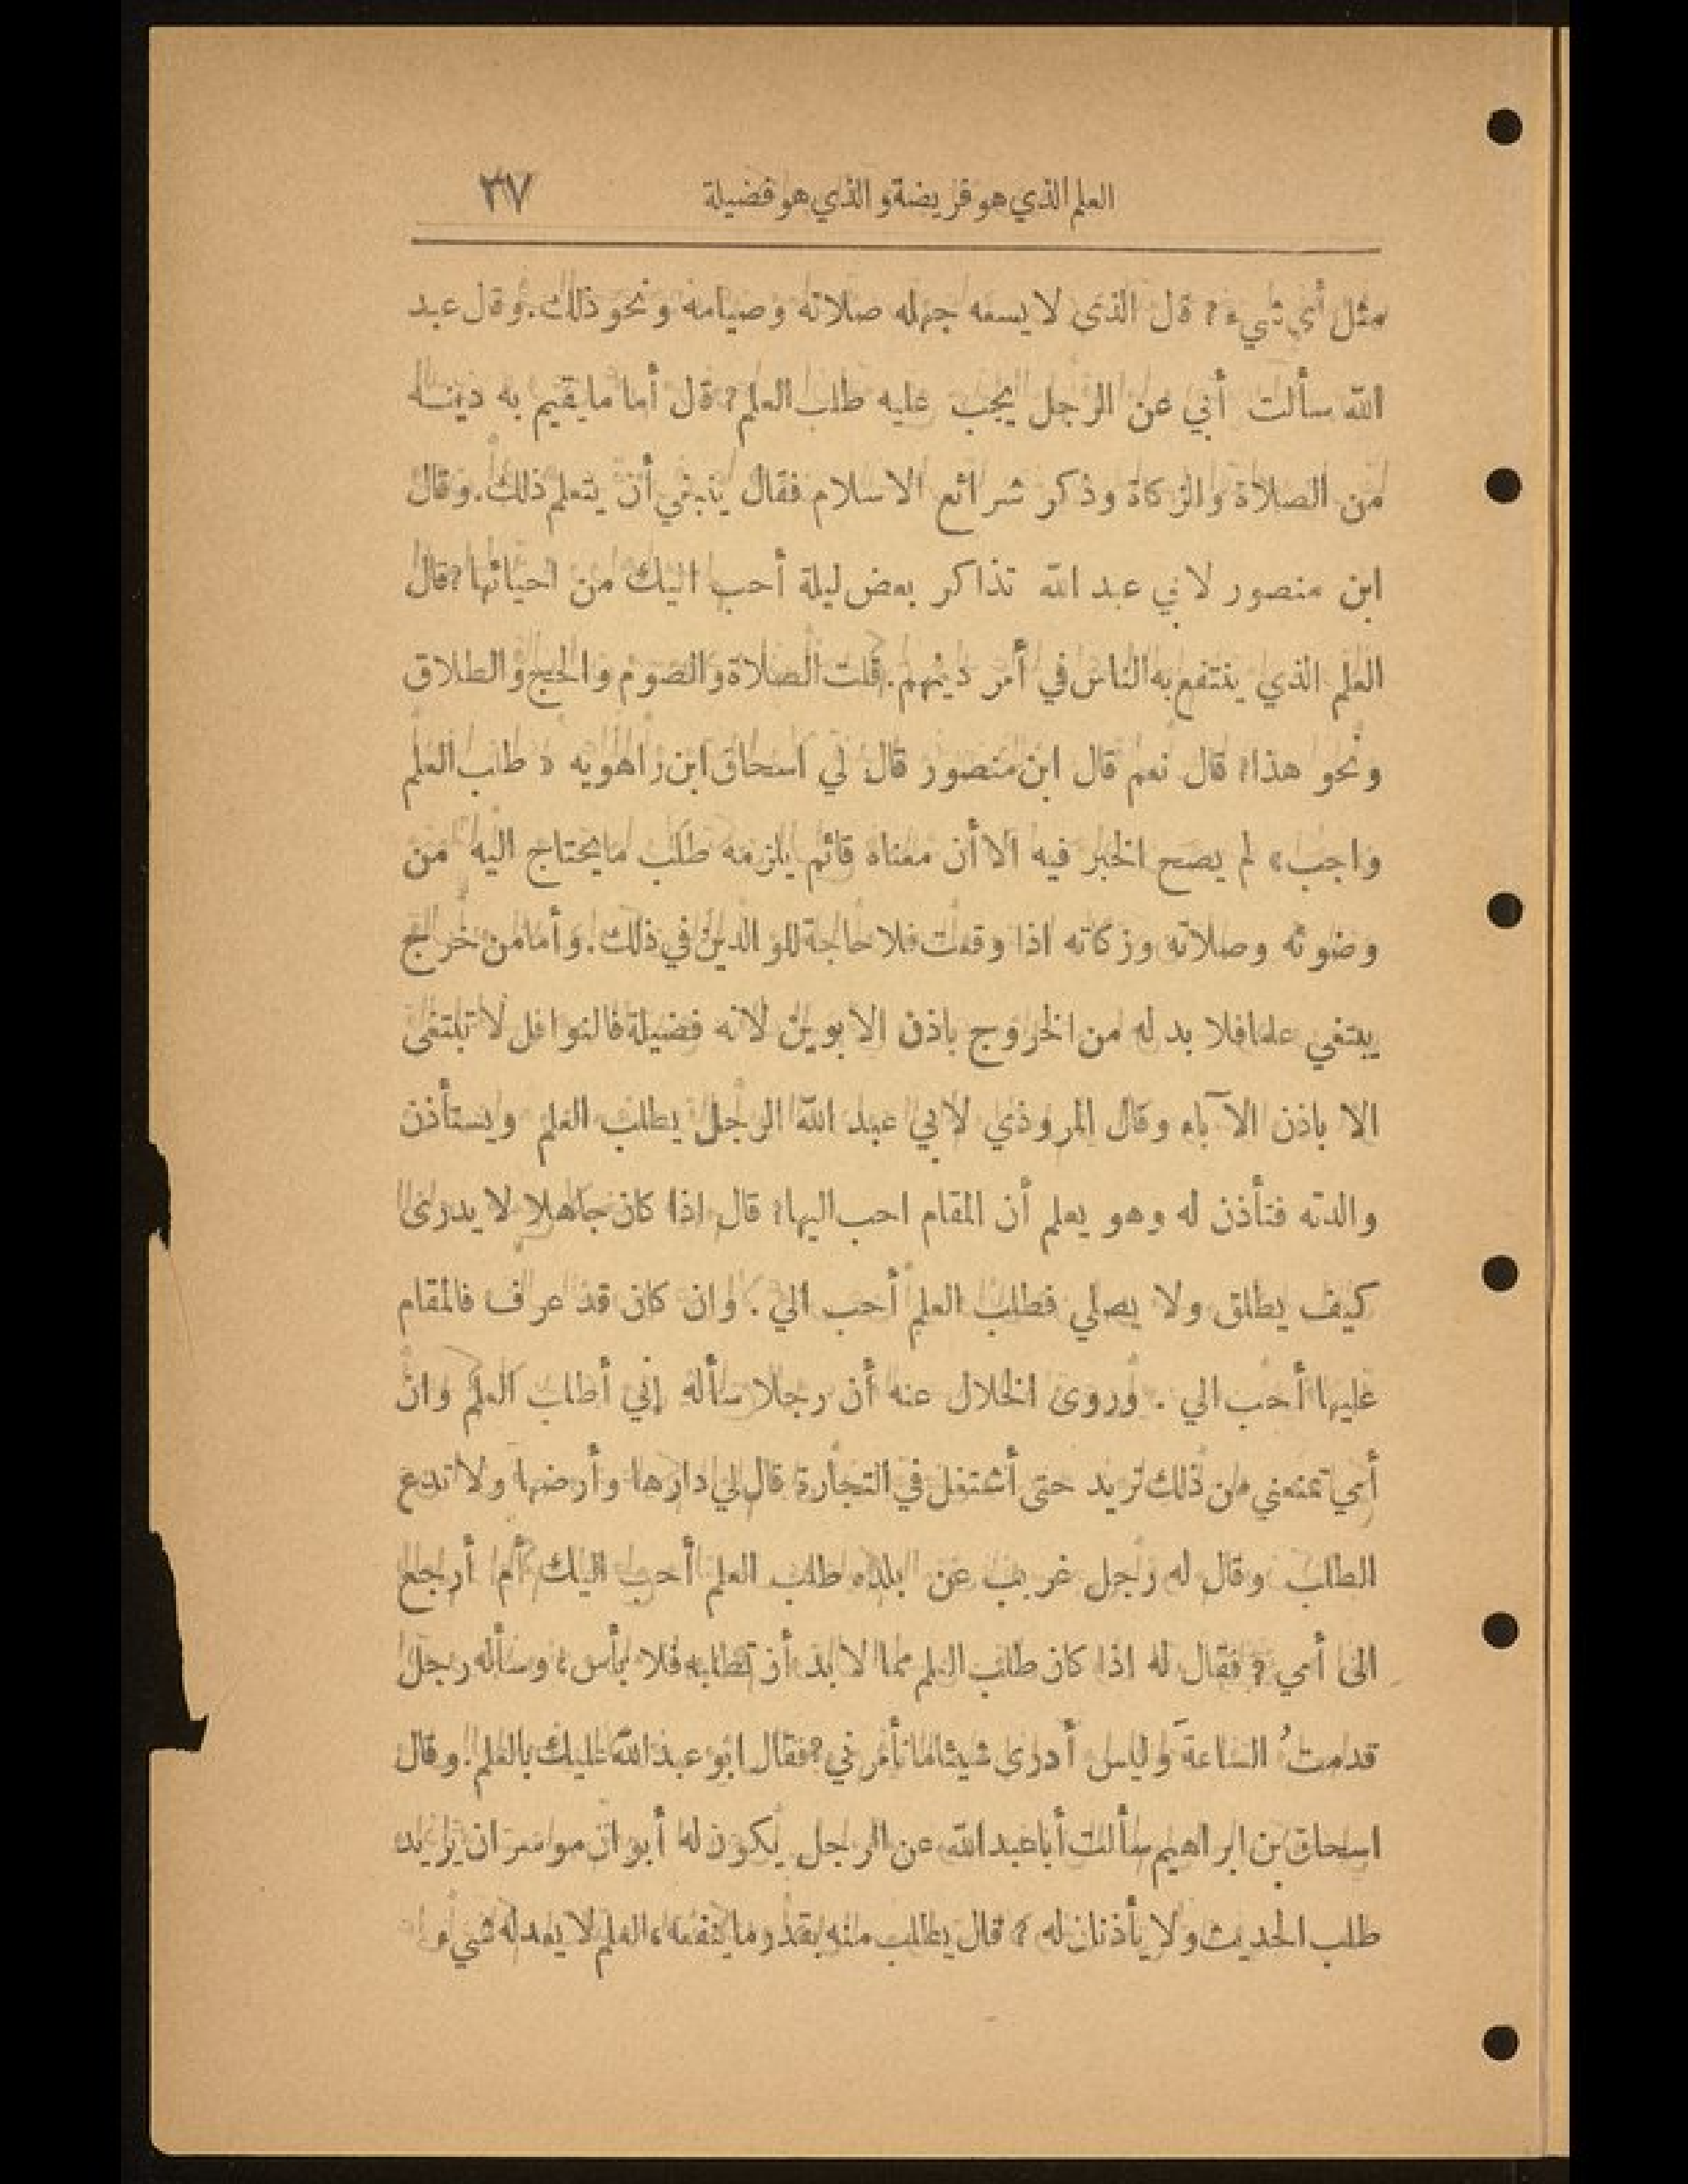 العلم الذي هو فريضة والذي هو فضيلة ٣٧
مثل أي شيء؟ قال الذى لا يسعه جهله صلاته وصيامه ونحو ذلك. وقال عبد
الله سألت أبي عن الرجل يجب عليه طلب العلم؟ قال أما ما يقيم به دينه
من الصلاة والزكاة وذكر شرائع الاسلام فقال ينبغي أن يتعلم ذلك. وقال
ابن منصور لابي عبد الله تذاكر بعض ليلة أحب اليك من احيائها؟ قال
العلم الذي ينتفع به الناس في أمر دينهم. قلت الصلاة والصوم والحج والطلاق
ونحو هذا؟ قال نعم قال ابن منصور قال لي اسحاق ابن راهويه « طلب العلم
واجب» لم يصح الخبر فيه الا أن معناه قائم يلزمه طلب مايحتاج اليه من
وضوئه وصلاته وزكاته اذا وقعت فلا حاجة للوالدين في ذلك. وأما من خرج
يبتغي علما فلا بد له من الخروج باذن الابوين لانه فضيلة فالنوافل لا تبتغى
الا باذن الآباء وقال المروذي لابي عبد الله الرجل يطلب العلم ويستأذن
والدته فتأذن له وهو يعلم أن المقام احب اليها؟ قال اذا كان جاهلا لا يدرى
كيف يطلق ولا يصلي فطلب العلم أحب الي. وان كان قد عرف فالمقام
عليها أحب الي. وروى الخلال عنه أن رجلا سأله إني أطلب العلم وان
أمي تمنعني من ذلك تريد حتى أشتغل في التجارة قال لي دارها وأرضها ولا تدع
الطلب وقال له رجل غريب عن بلده طلب العلم أحب اليك أم أرجع
الى أمي؟ فقال له اذا كان طلب العلم مما لا بد أن تطلبه فلا بأس، وسأله رجل
قدمتُ الساعةَ وليس أدرى شيئا ما تأمرني؟ فقال ابو عبد الله عليك بالعلم. وقال
اسحاق بن ابراهيم سألت أبا عبد الله عن الرجل يكون له أبوان موسران يريد
طلب الحديث ولا يأذنان له؟ قال يطلب منه بقدر ما ينفعه، العلم لا يعدله شيء